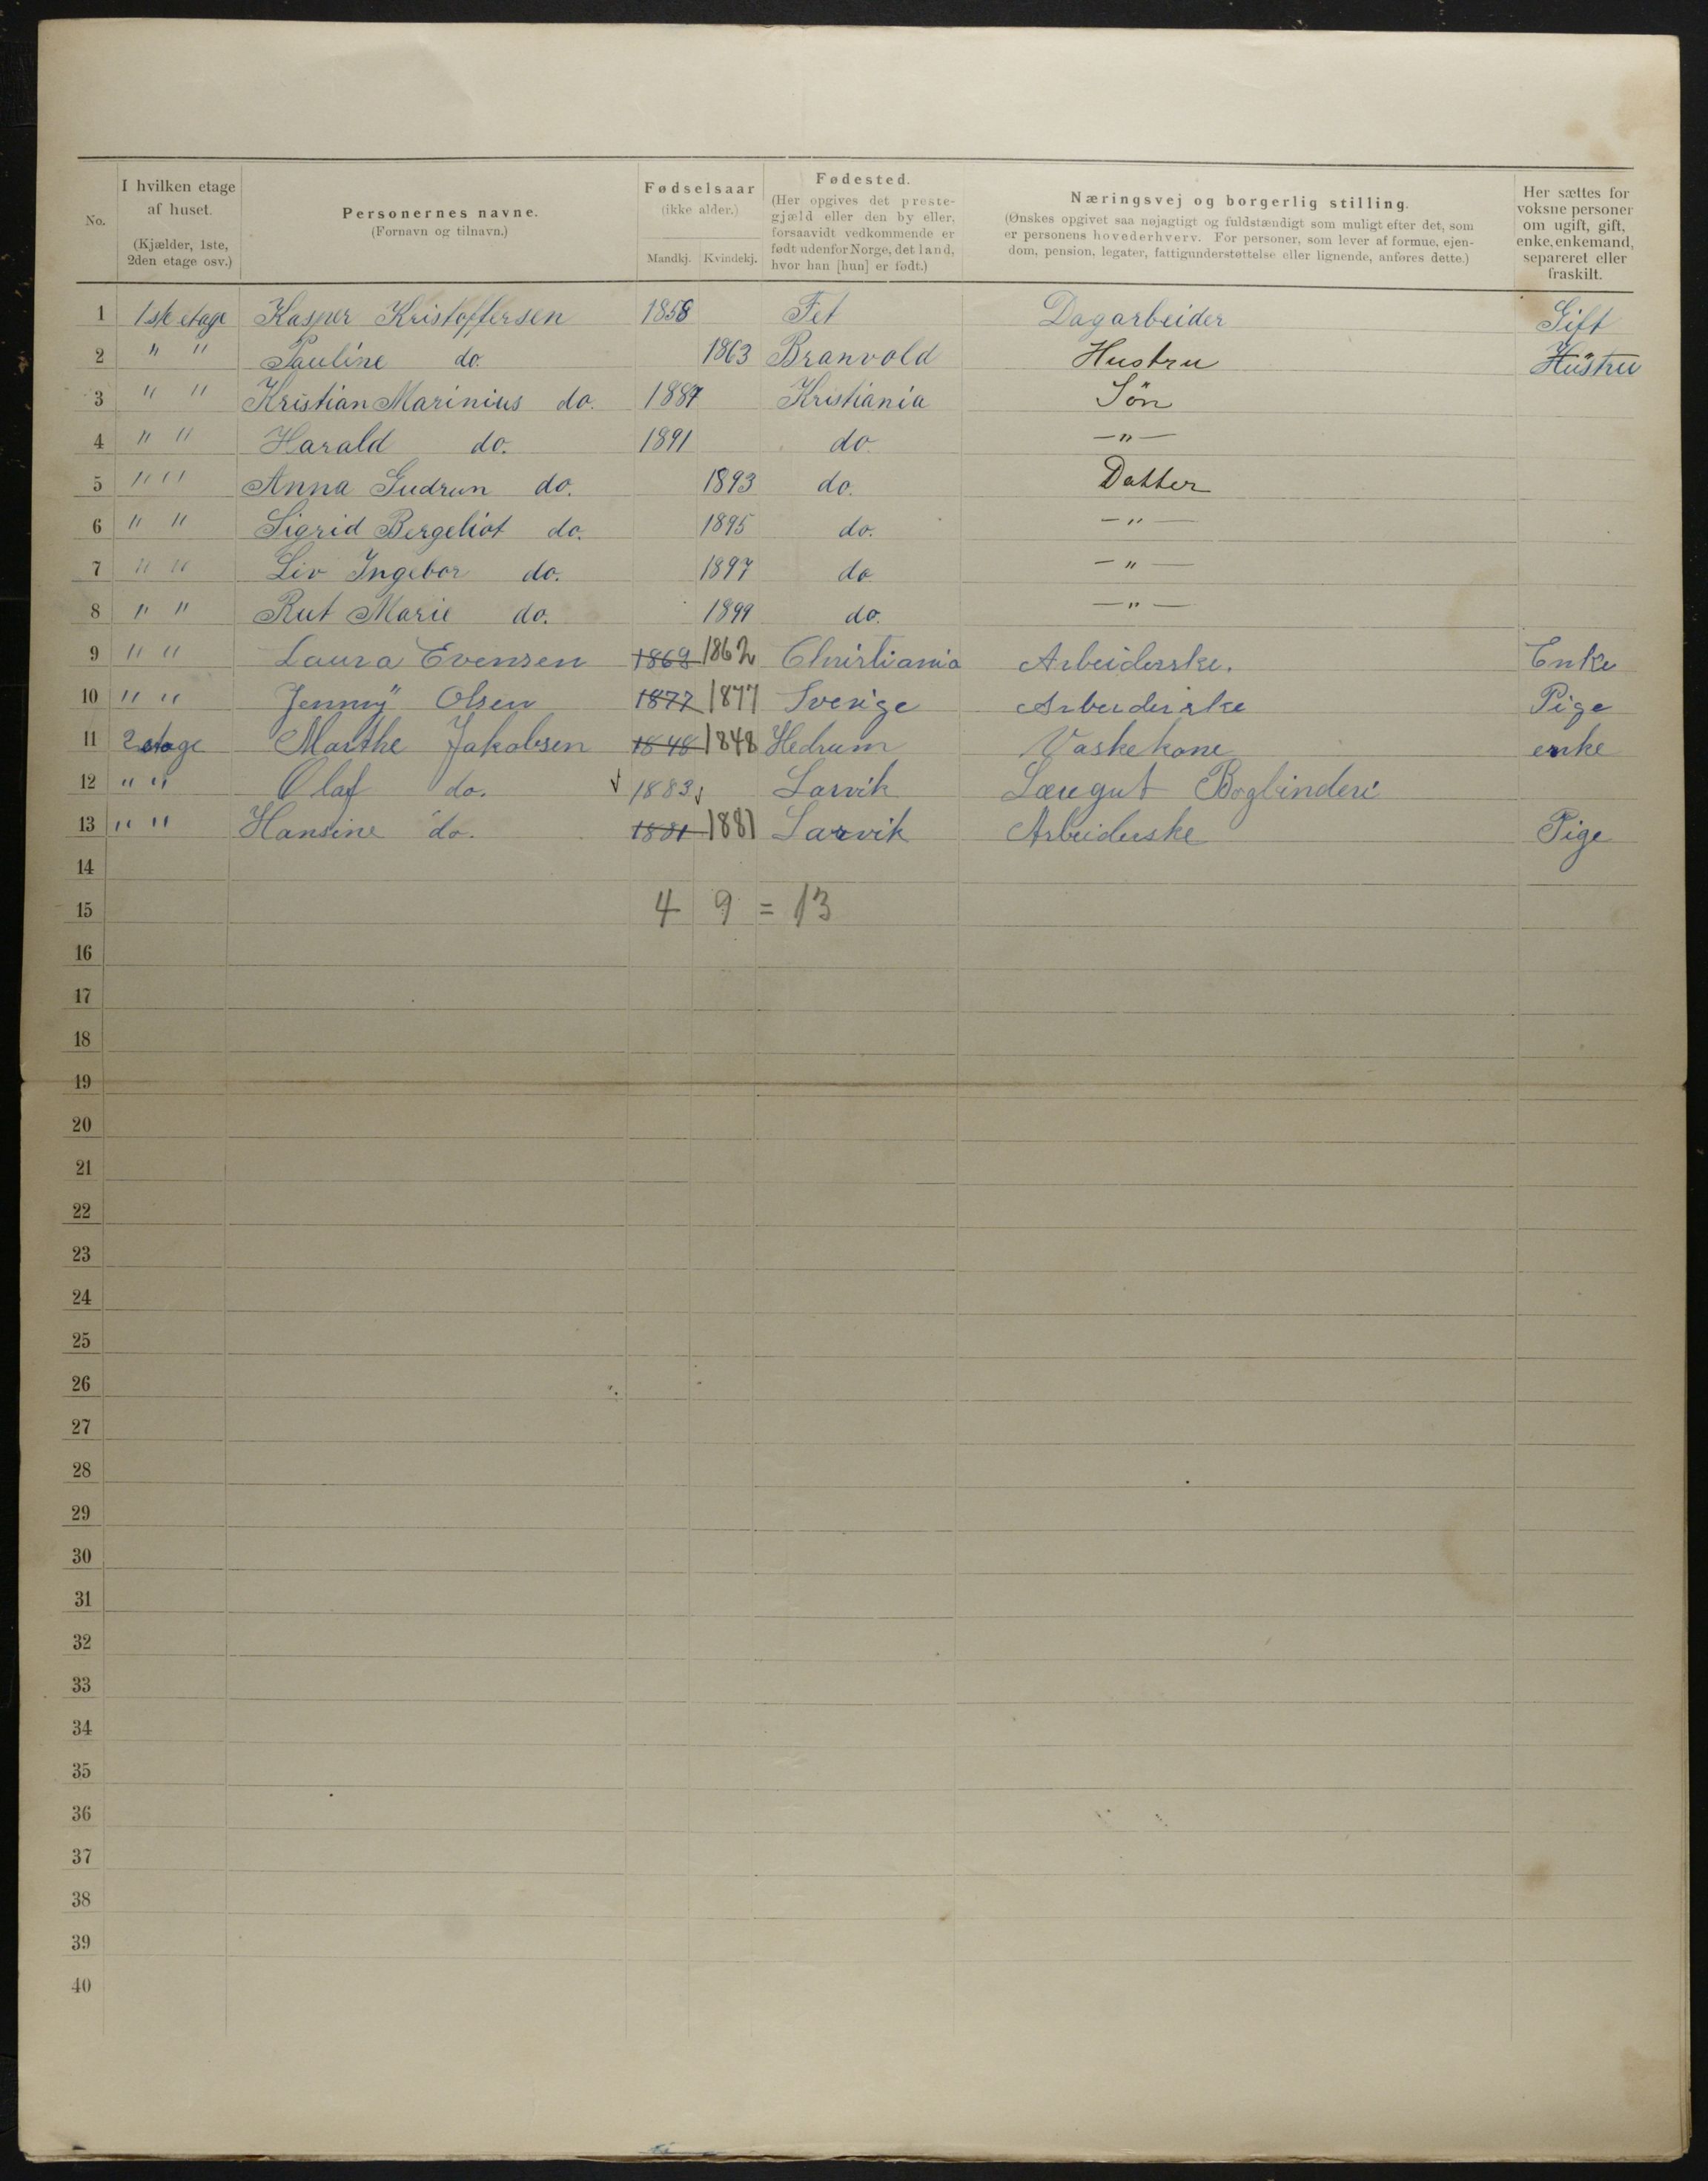 No.
I hvilken etage af huset. (Kjælder, 1ste, 2den etage osv.)
Personernes navne. (Fornavn og tilnavn.)
Fødselsaar (ikke alder.) Mandkj. Kvindekj.
Fødested. (Her opgives det prestegjæld eller den by eller, forsaavidt vedkommende er født udenfor Norge, det land, hvor han [hun] er født.)
Næringsvej og borgerlig stilling. (Ønskes opgivet saa nøjagtigt og fuldstændigt som muligt efter det, som er personens hovederhverv. For personer, som lever af formue, ejendom, pension, legater, fattigunderstøttelse eller lignende, anføres dette.)
Her sættes for voksne personer om ugift, gift, enke, enkemand, separeret eller fraskilt.
1 1ste etage Kasper Kristoffersen 1858 Fet Dagarbeider Gift
2 " " Pauline do. 1863 Branvold Hustru Hustru
3 " " Kristian Marinius do. 1887 Kristiania Sön
4 " " Harald do. 1891 do —"—
5 " " Anna Gudrun do. 1893 do. Datter
6 " " Sigrid Bergeliot do. 1895 do. —"—
7 " " Liv Ingebor do. 1897 do —"—
8 " " Rut Marie do. 1899 do. —"—
9 " " Laura Evensen 1862 1862 Christiania Arbeiderske. Enke
10 " " Jenny Olsen 1877 1877 Sverige Arbeiderske Pige
11 2 etage Marthe Jakobsen 1848 1848 Hedrum Vaskekone enke
12 " " Olaf do. 1883 Larvik Læregut Bogbinderi
13 " " Hansine do. 1881 1881 Larvik Arbeiderske Pige
14
15 4 9 = 13
16
17
18
19
20
21
22
23
24
25
26
27
28
29
30
31
32
33
34
35
36
37
38
39
40